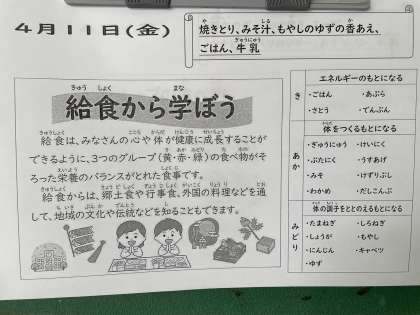 4月11日(金)
焼きとり、みそ汁、もやしのゆずの香あえ、
ごはん、牛乳
給食から学ぼう
給食は、みなさんの心や体が健康に成長することが
できるように、3つのグループ(黄・赤・緑)の食べ物がそ
ろった栄養のバランスがとれた食事です。
給食からは、郷土食や行事食、外国の料理などを通
して、地域の文化や伝統などを知ることもできます。
き
エネルギーのもとになる
・ごはん ・あぶら
・さとう ・でんぷん
あか
体をつくるもとになる
・ぎゅうにゅう ・けいにく
・ぶたにく ・うすあげ
・みそ ・けずりぶし
・わかめ ・だしこんぶ
みどり
体の調子をととのえるもとになる
・たまねぎ ・しろねぎ
・しょうが ・もやし
・にんじん ・キャベツ
・ゆず